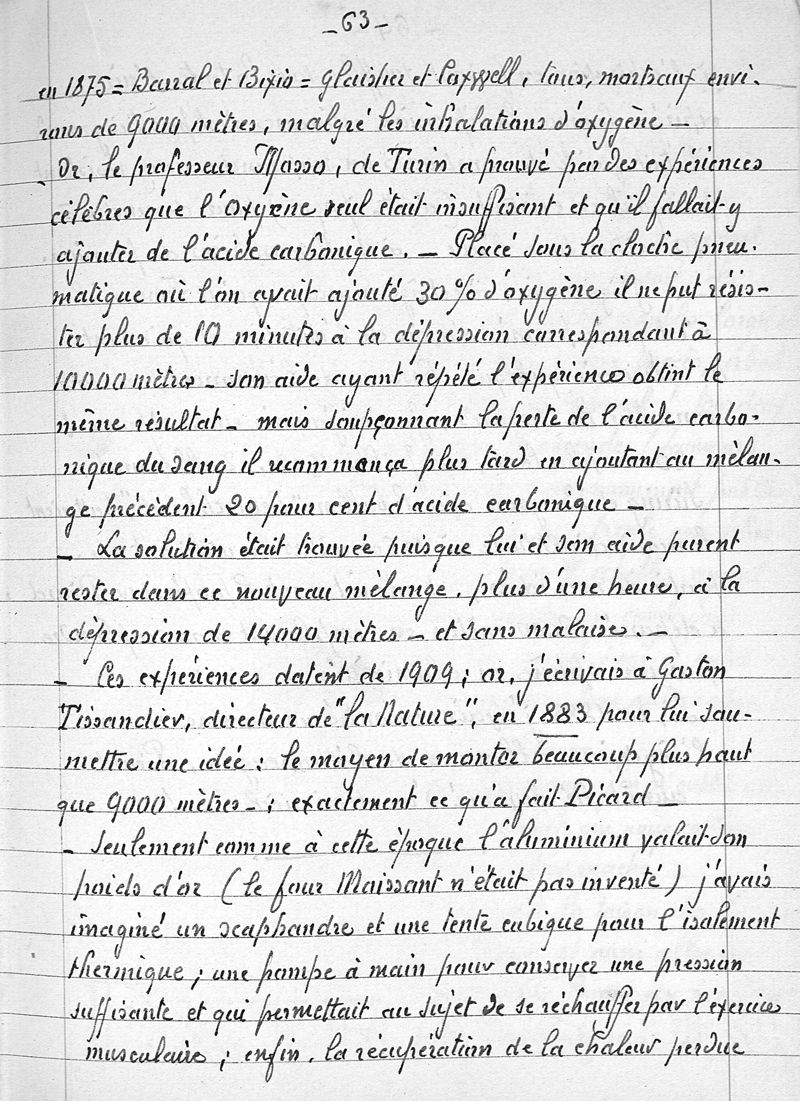 _ 63 _
en 1875 = Barral et Bixio = Glaisher et Coxwell, tous, mortsaux envi-
rons de 9000 mètres, malgré les inhalations d'oxygène _
Or, le professeur Mosso, de Turin a prouvé par des expériences
célèbres que l'oxygène seul était insuffisant et qu'il fallait y
ajouter de l'acide carbonique. _ Placé sous la cloche pneu-
matique où l'on avait ajouté 30 % d'oxygène il ne put résis-
ter plus de 10 minutes à la dépression correspondant à
10000 mètres _ son aide ayant répété l'expérience obtint le
même résultat _ mais soupçonnant la perte de l'acide carbo-
nique du sang il recommença plus tard en ajoutant au mélan-
ge précédent 20 pour cent d'acide carbonique _
_ La solution était trouvée puisque lui et son aide purent
rester dans ce nouveau mélange, plus d'une heure, à la
dépression de 14000 mètres _ et sans malaise. _
_ Ces expériences datent de 1909 ; or, j'écrivais à Gaston
Tissandier, directeur de "la Nature", en 1883 pour lui sou-
mettre une idée : le moyen de monter beaucoup plus haut
que 9000 mètres _ ; exactement ce qu'a fait Picard _
_ Seulement comme à cette époque l'aluminium valait son
poids d'or (le four Moissant n'était pas inventé) j'avais
imaginé un scaphandre et une tente cubique pour l'isolement
thermique ; une pompe à main pour conserver une pression
suffisante et qui permettait au sujet de se réchauffer par l'exercice
musculaire ; enfin, la récupération de la chaleur perdue